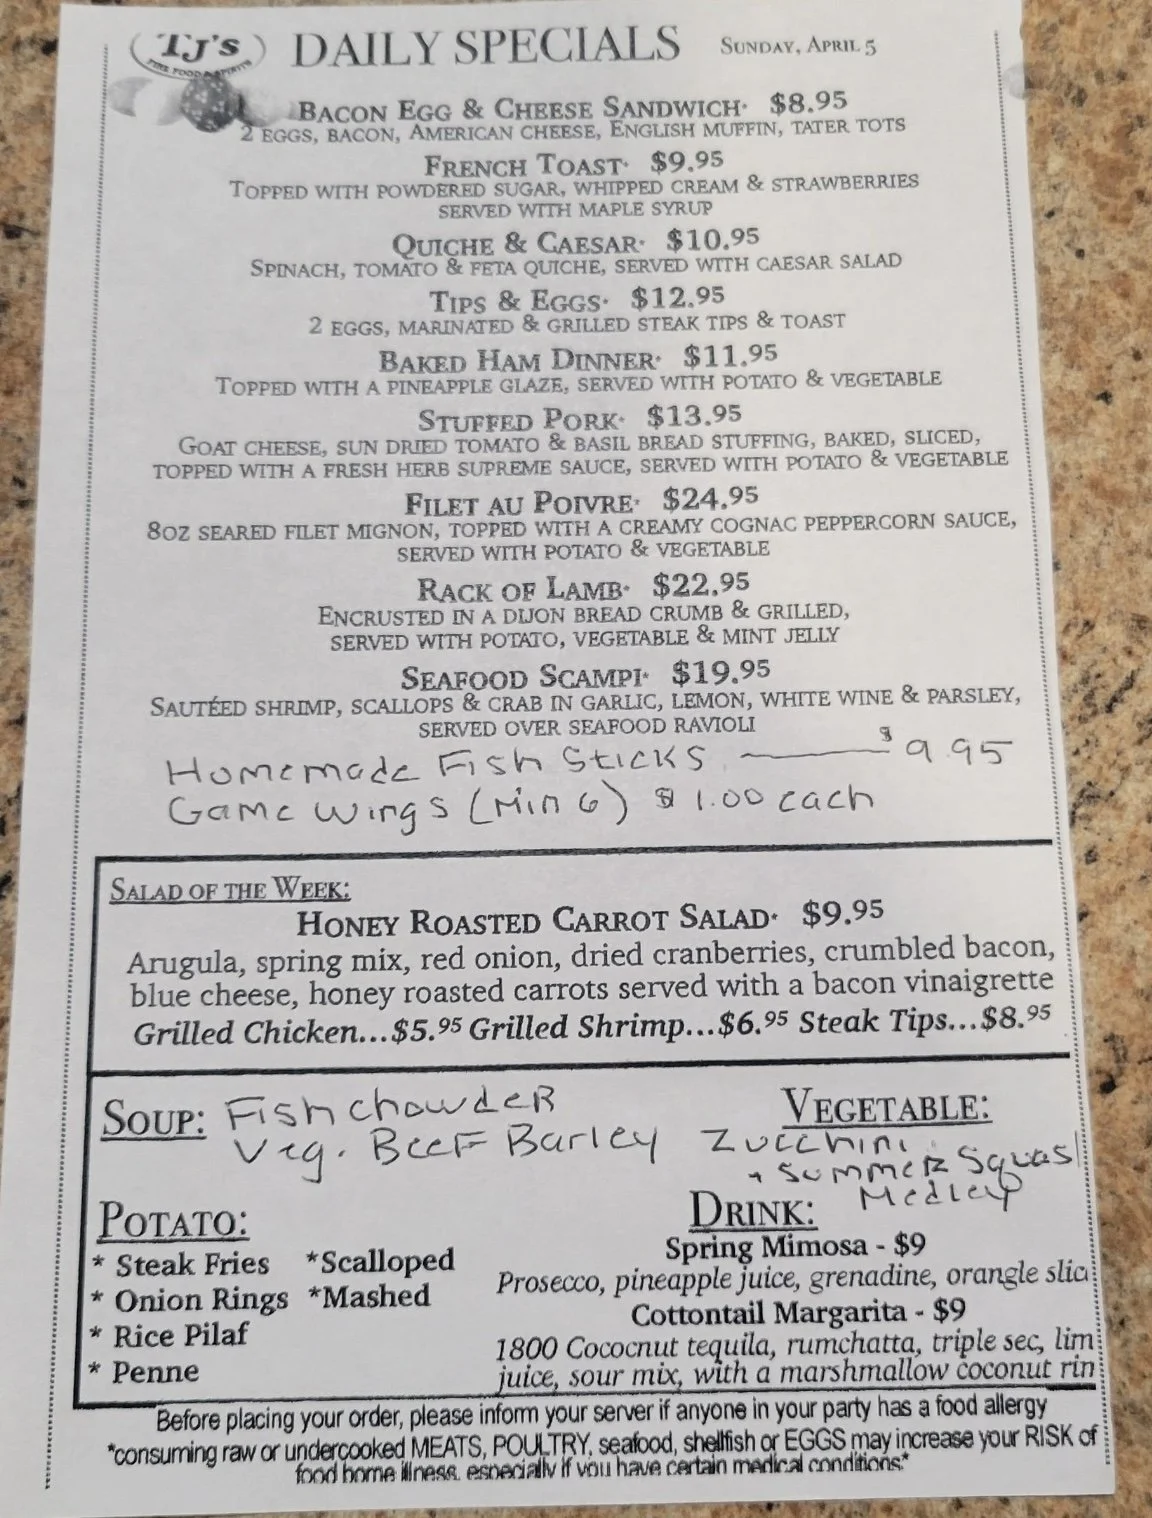 TJ's
FINE FOOD & SPIRITS
DAILY SPECIALS
SUNDAY, APRIL 5
BACON EGG & CHEESE SANDWICH· $8.95
2 EGGS, BACON, AMERICAN CHEESE, ENGLISH MUFFIN, TATER TOTS
FRENCH TOAST· $9.95
TOPPED WITH POWDERED SUGAR, WHIPPED CREAM & STRAWBERRIES
SERVED WITH MAPLE SYRUP
QUICHE & CAESAR· $10.95
SPINACH, TOMATO & FETA QUICHE, SERVED WITH CAESAR SALAD
TIPS & EGGS· $12.95
2 EGGS, MARINATED & GRILLED STEAK TIPS & TOAST
BAKED HAM DINNER· $11.95
TOPPED WITH A PINEAPPLE GLAZE, SERVED WITH POTATO & VEGETABLE
STUFFED PORK· $13.95
GOAT CHEESE, SUN DRIED TOMATO & BASIL BREAD STUFFING, BAKED, SLICED,
TOPPED WITH A FRESH HERB SUPREME SAUCE, SERVED WITH POTATO & VEGETABLE
FILET AU POIVRE· $24.95
8OZ SEARED FILET MIGNON, TOPPED WITH A CREAMY COGNAC PEPPERCORN SAUCE,
SERVED WITH POTATO & VEGETABLE
RACK OF LAMB· $22.95
ENCRUSTED IN A DIJON BREAD CRUMB & GRILLED,
SERVED WITH POTATO, VEGETABLE & MINT JELLY
SEAFOOD SCAMPI· $19.95
SAUTÉED SHRIMP, SCALLOPS & CRAB IN GARLIC, LEMON, WHITE WINE & PARSLEY,
SERVED OVER SEAFOOD RAVIOLI
Homemade Fish Sticks — $9.95
Game Wings (Min 6) $1.00 each
SALAD OF THE WEEK:
HONEY ROASTED CARROT SALAD· $9.95
Arugula, spring mix, red onion, dried cranberries, crumbled bacon,
blue cheese, honey roasted carrots served with a bacon vinaigrette
Grilled Chicken...$5.95 Grilled Shrimp...$6.95 Steak Tips...$8.95
SOUP: Fish chowder
Veg. Beef Barley
VEGETABLE:
Zucchini
+ Summer Squash
Medley
POTATO:
* Steak Fries *Scalloped
* Onion Rings *Mashed
* Rice Pilaf
* Penne
DRINK:
Spring Mimosa - $9
Prosecco, pineapple juice, grenadine, orangle slic
Cottontail Margarita - $9
1800 Cococnut tequila, rumchatta, triple sec, lim
juice, sour mix, with a marshmallow coconut rin
Before placing your order, please inform your server if anyone in your party has a food allergy
*consuming raw or undercooked MEATS, POULTRY, seafood, shellfish or EGGS may increase your RISK of
food borne illness, especially if you have certain medical conditions*